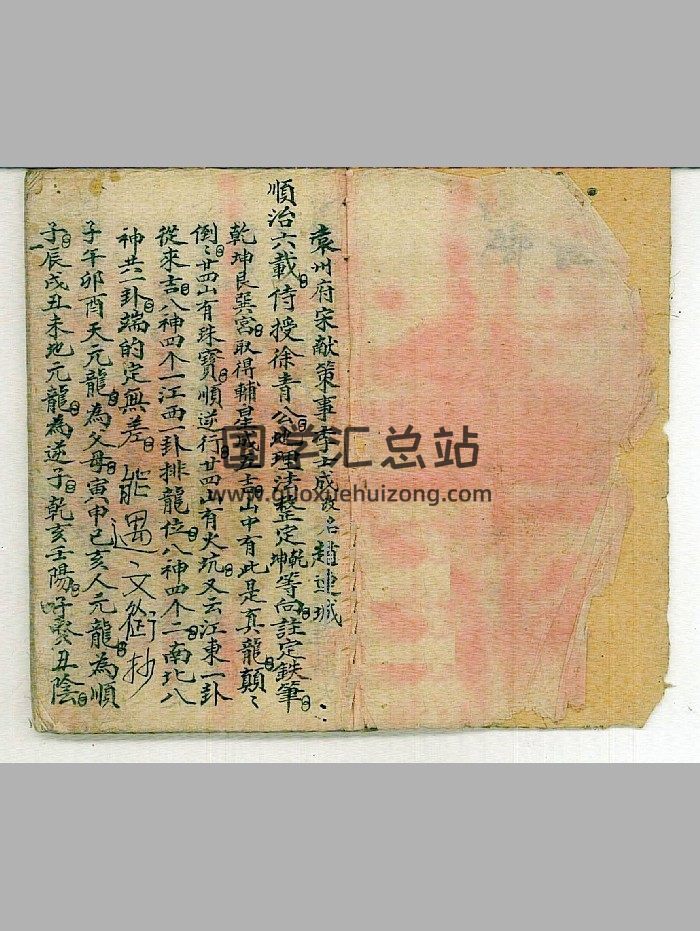 袁州府宋献策事李士成改名趙連城
順治六載侍授徐青公地理法整定乾坤等向註定鉄筆
乾坤艮巽宮取得輔星成五吉山中有此是真龍顛〻
倒〻廿四山有珠寶順逆行廿四山有火坑又云江東一卦
從來吉八神四个一江西一卦排龍位八神四个二南北八
神共一卦端的定無差 能遇文衜抄
子午卯酉天元龍為父母寅申巳亥人元龍為順
子辰戌丑未地元龍為逆子乾亥壬陽 癸丑陰
国学汇总站
www.guoxuehuizong.com